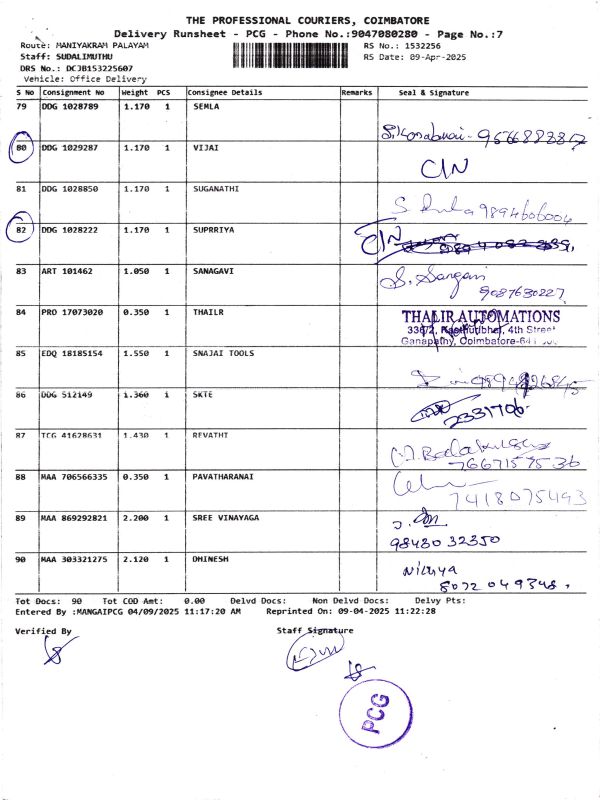 THE PROFESSIONAL COURIERS, COIMBATORE
Delivery Runsheet - PCG - Phone No.:9047080280 - Page No.:7
Route: MANIYAKRAM PALAYAM RS No.: 1532256
Staff: SUDALIMUTHU RS Date: 09-Apr-2025
DRS No.: DCJB153225607
Vehicle: Office Delivery
S No Consignment No Weight PCS Consignee Details Remarks Seal & Signature
79 DDG 1028789 1.170 1 SEMLA
80 DDG 1029287 1.170 1 VIJAI CIN
81 DDG 1028850 1.170 1 SUGANATHI 9894606004
82 DDG 1028222 1.170 1 SUPRRIYA CIN
83 ART 101462 1.050 1 SANAGAVI S. Sangavi
9087630227
84 PRO 17073020 0.350 1 THAILR THALIR AUTOMATIONS
4th Street
Ganapathy, Coimbatore-641
85 EDQ 18185154 1.550 1 SNAJAI TOOLS
86 DDG 512149 1.360 1 SKTE 2331706
87 TCG 41628631 1.430 1 REVATHI
7667157536
88 MAA 706566335 0.350 1 PAVATHARANAI
7418075493
89 MAA 869292821 2.200 1 SREE VINAYAGA
98430 32350
90 MAA 303321275 2.120 1 DHINESH Nithya
8072049348.
Tot Docs: 90 Tot COD Amt: 0.00 Delvd Docs: Non Delvd Docs: Delvy Pts:
Entered By :MANGAIPCG 04/09/2025 11:17:20 AM Reprinted On: 09-04-2025 11:22:28
Verified By Staff Signature
PCG